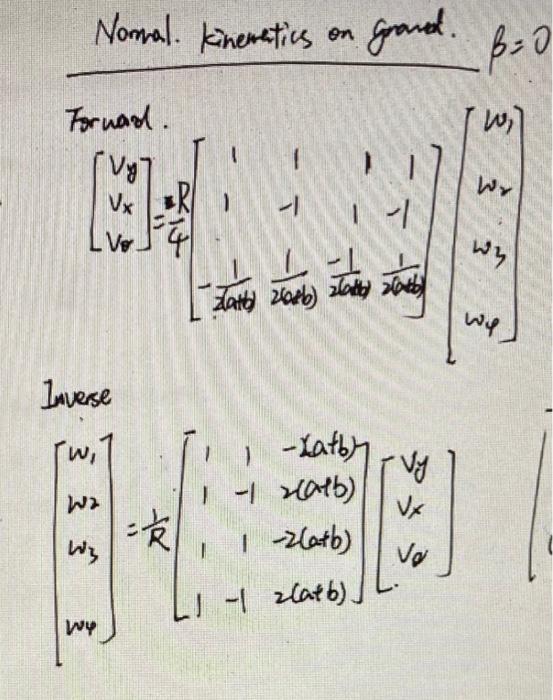 Normal. kinematics on ground. β=0
Forward.
[Vy Vx Vθ] = R/4 [1 1 1 1
1 -1 1 -1
-1/2(a+b) 1/2(a+b) -1/2(a+b) 1/2(a+b)] [w1 w2 w3 w4]
Inverse
[w1 w2 w3 w4] = 1/R [1 1 -2(a+b)
1 -1 2(a+b)
1 1 -2(a+b)
1 -1 2(a+b)] [Vy Vx Vθ]